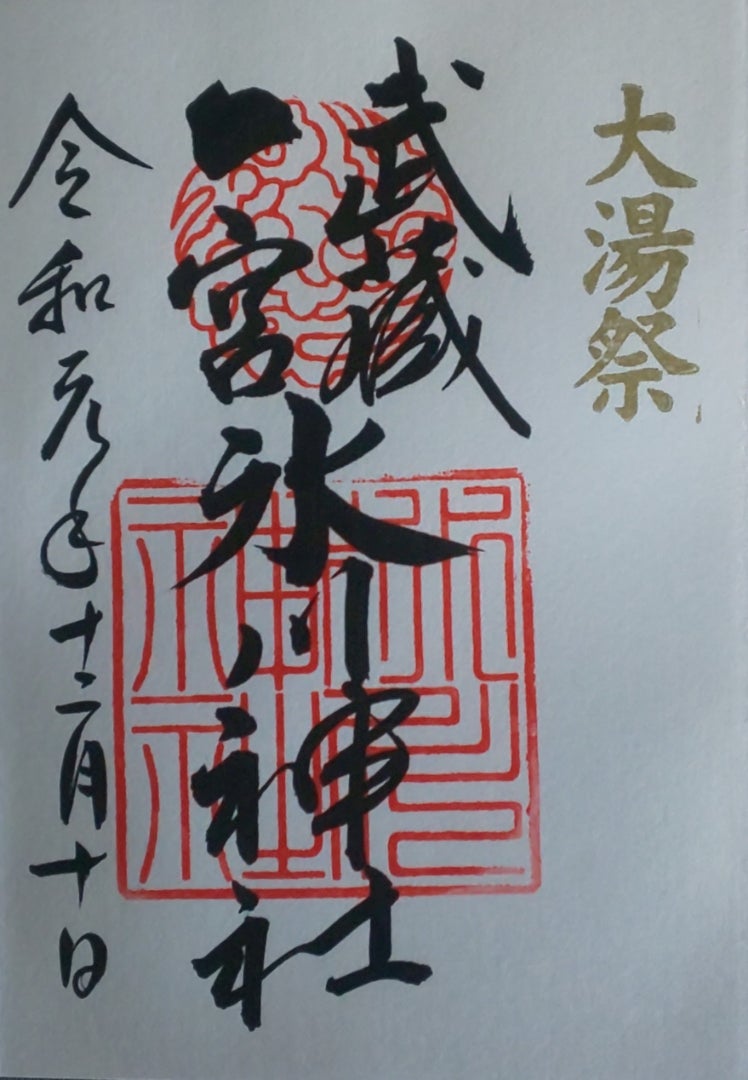 大湯祭
武蔵
一宮
氷川神社
令和元年十二月十日
氷川神社